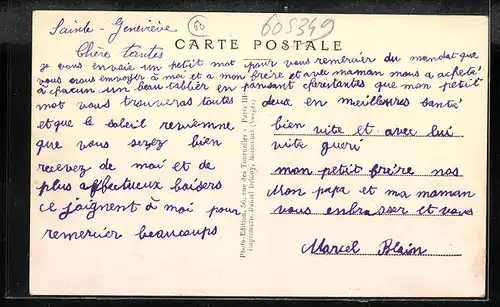 Sainte-Geneviève
60
605349
CARTE POSTALE
Chère tantes
je vous envoie un petit mot pour vous remercier du mandat que
vous avous envoyer à moi et a mon frère et avec maman nous a acheté
à chacun un beau tablier en pensant chèretantes que mon petit
mot vous trouveras toutes deux en meilleures santé
et que le soleil revienne
que vous serez bien
recevez de moi et de
plus affectueux baisers
ce joignent à moi pour
remercier beaucoups
bien vite et avec lui
vite gueri
mon petit frère nos
Mon papa et ma maman
vous embrasser et vous
Marcel Blain
Photo-Edition, 56, rue des Tournelles - Paris III
Imprimerie Daniel Delboy, Mirecourt (Vosges)